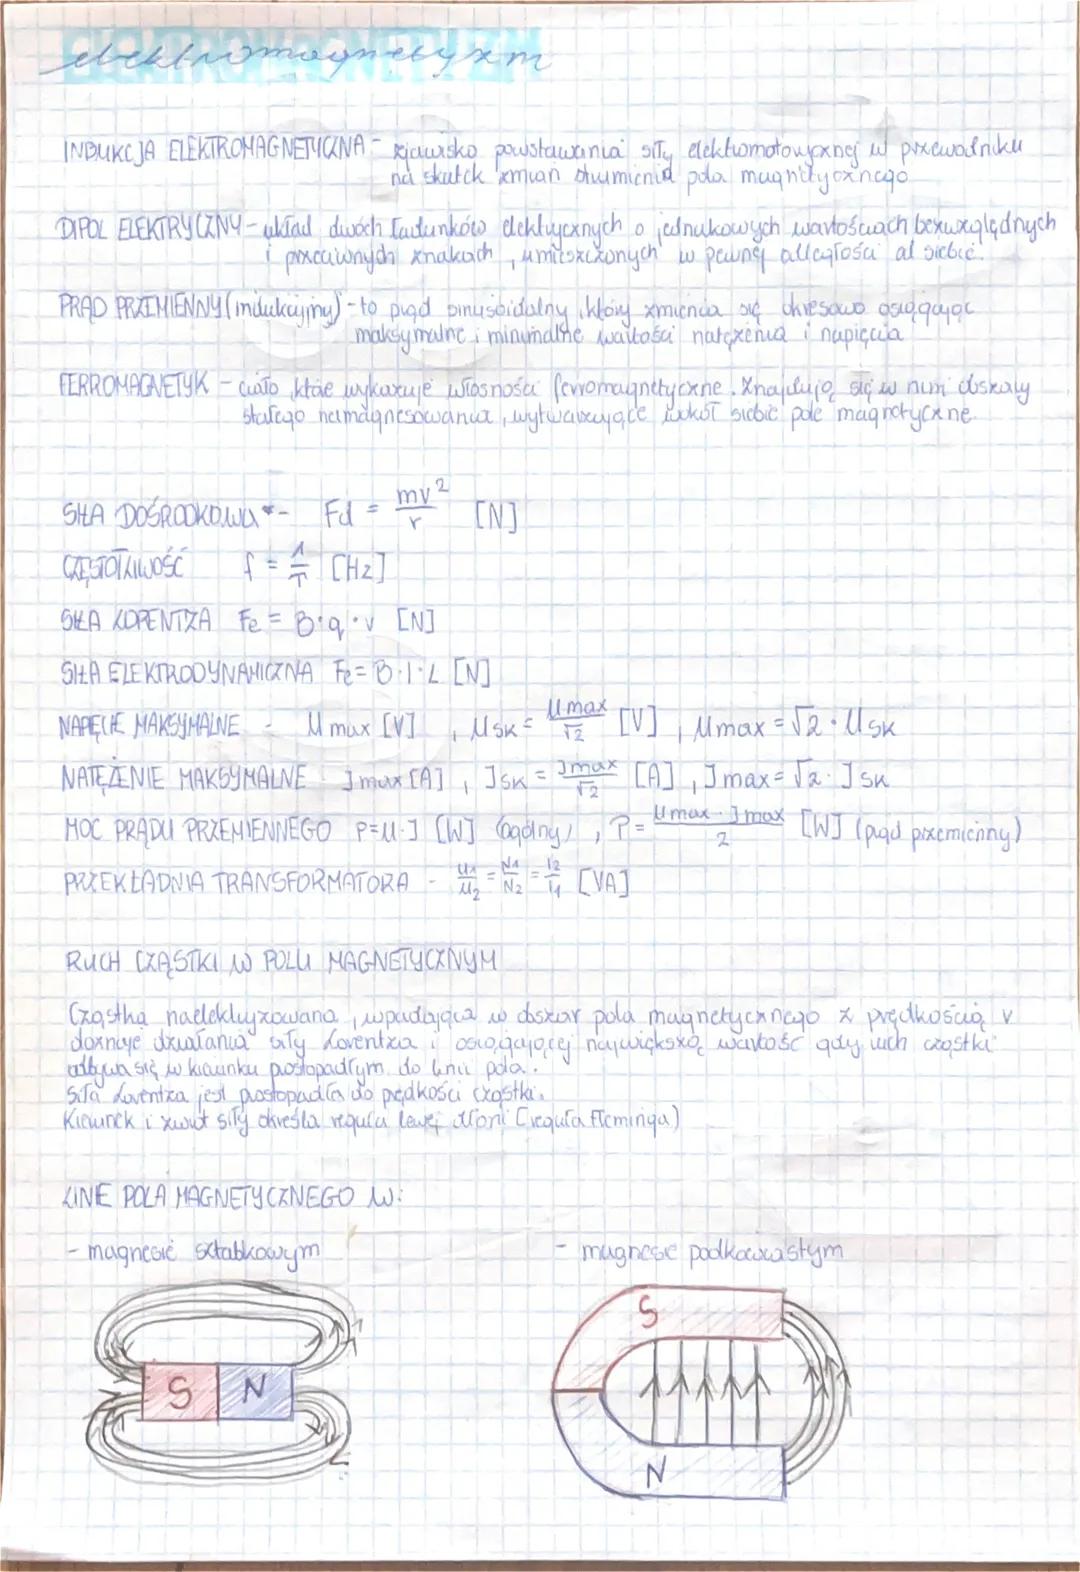 elektromagnetyzm
INDUKCJA ELEKTROMAGNETYCZNA - zjawisko powstawania siły elektromotorycznej w przewodniku
na skutek zmian strumienia pola magnetycznego
DIPOL ELEKTRYCZNY - układ dwóch ładunków elektrycznych o jednakowych wartościach bezwzględnych
i przeciwnych znakach, umieszczonych w pewnej odległości od siebie.
PRĄD PRZEMIENNY (indukcyjny) - to prąd sinusoidalny, który zmienia się okresowo osiągając
maksymalne i minimalne wartości natężenia i napięcia
FERROMAGNETYK - ciało, które wykazuje własności ferromagnetyczne. Znajdują się w nim obszary
stałego namagnesowania, wytwarzające wokół siebie pole magnetyczne
SIŁA DOŚRODKOWA* - Fd = mv²/r [N]
CZĘSTOTLIWOŚĆ f = 1/T [Hz]
SIŁA LORENTZA Fe = B·q·v [N]
SIŁA ELEKTRODYNAMICZNA Fe = B·I·L [N]
NAPIĘCIE MAKSYMALNE - Umax [V], Usk = Umax/√2 [V], Umax = √2 · Usk
NATĘŻENIE MAKSYMALNE Jmax [A], Jsk = Jmax/√2 [A], Jmax = √2 · Jsk
MOC PRĄDU PRZEMIENNEGO P=U·J [W] (ogólny), P = Umax · Jmax/2 [W] (prąd przemienny)
PRZEKŁADNIA TRANSFORMATORA - U1/U2 = N1/N2 = I2/I1 [VA]
RUCH CZĄSTKI W POLU MAGNETYCZNYM
Cząstka naelektryzowana, wpadająca w obszar pola magnetycznego z prędkością v
doznaje działania siły Lorentza i osiągającej największą wartość gdy ruch cząstki
odbywa się w kierunku prostopadłym do linii pola.
Siła Lorentza jest prostopadła do prędkości cząstki.
Kierunek i zwrot siły określa reguła lewej dłoni (reguła Fleminga)
LINIE POLA MAGNETYCZNEGO W:
- magnesie sztabkowym - magnesie podkowiastym
S N
S
N